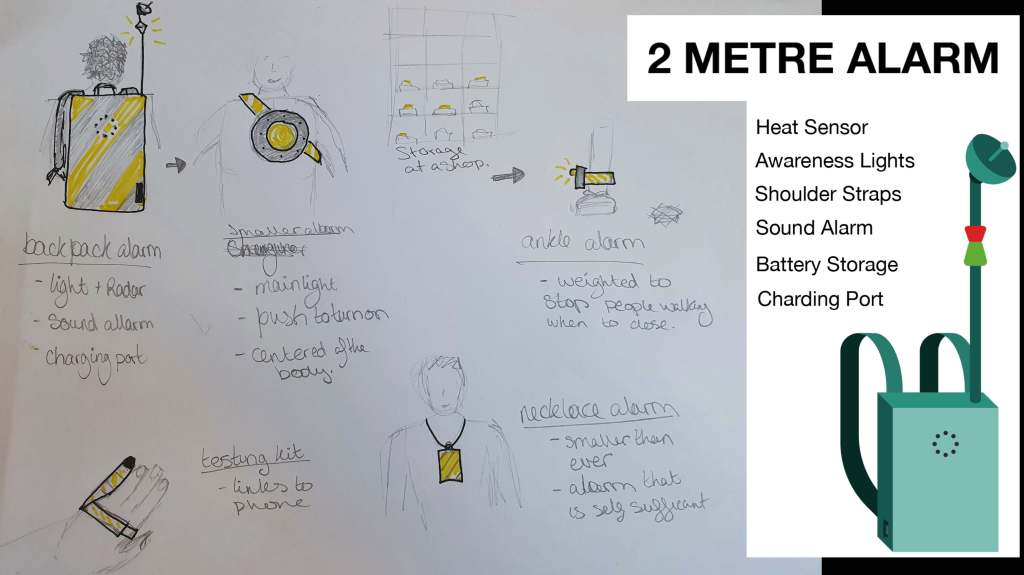 Storage
at a shop.
backpack alarm
- light + Radar
- Sound allarm
- charging port
Smaller alarm
- main light
- push to turn on
- centered of the
body.
ankle alarm
- weighted to
stop people walking
when to close.
testing kit
- links to
phone
necklace alarm
- smaller than
ever
- alarm that
is self sufficant
2 METRE ALARM
Heat Sensor
Awareness Lights
Shoulder Straps
Sound Alarm
Battery Storage
Charding Port